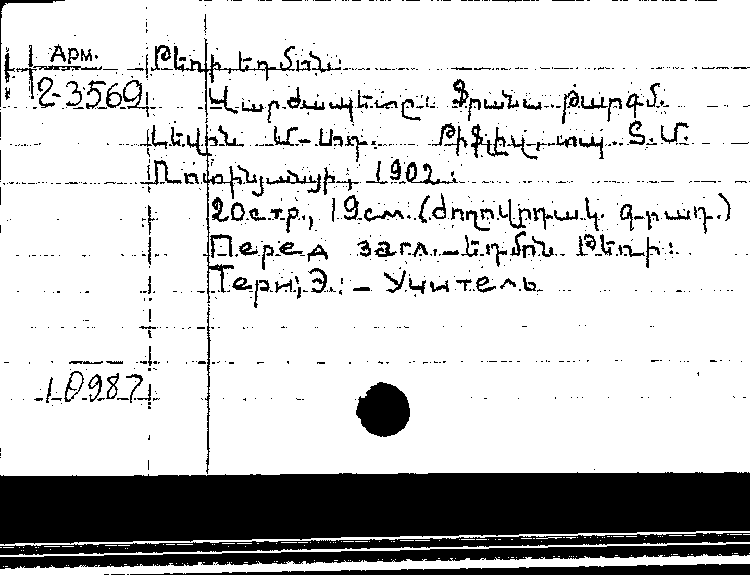 Арм.
2-3569
Թեռի, Եդմոն:
Վարժապետը: Ֆրանս. թարգմ.
Լեվոն Մ-Սոդ. Թիֆլիս, տպ. Տ.Մ.
Ռոտինյանցի, 1902:
20стр., 19см. (Ժողովրդակ. գրադ.)
Перед загл.-Եդմոն Թեռի:
Терри, Э.: - Учитель
10987